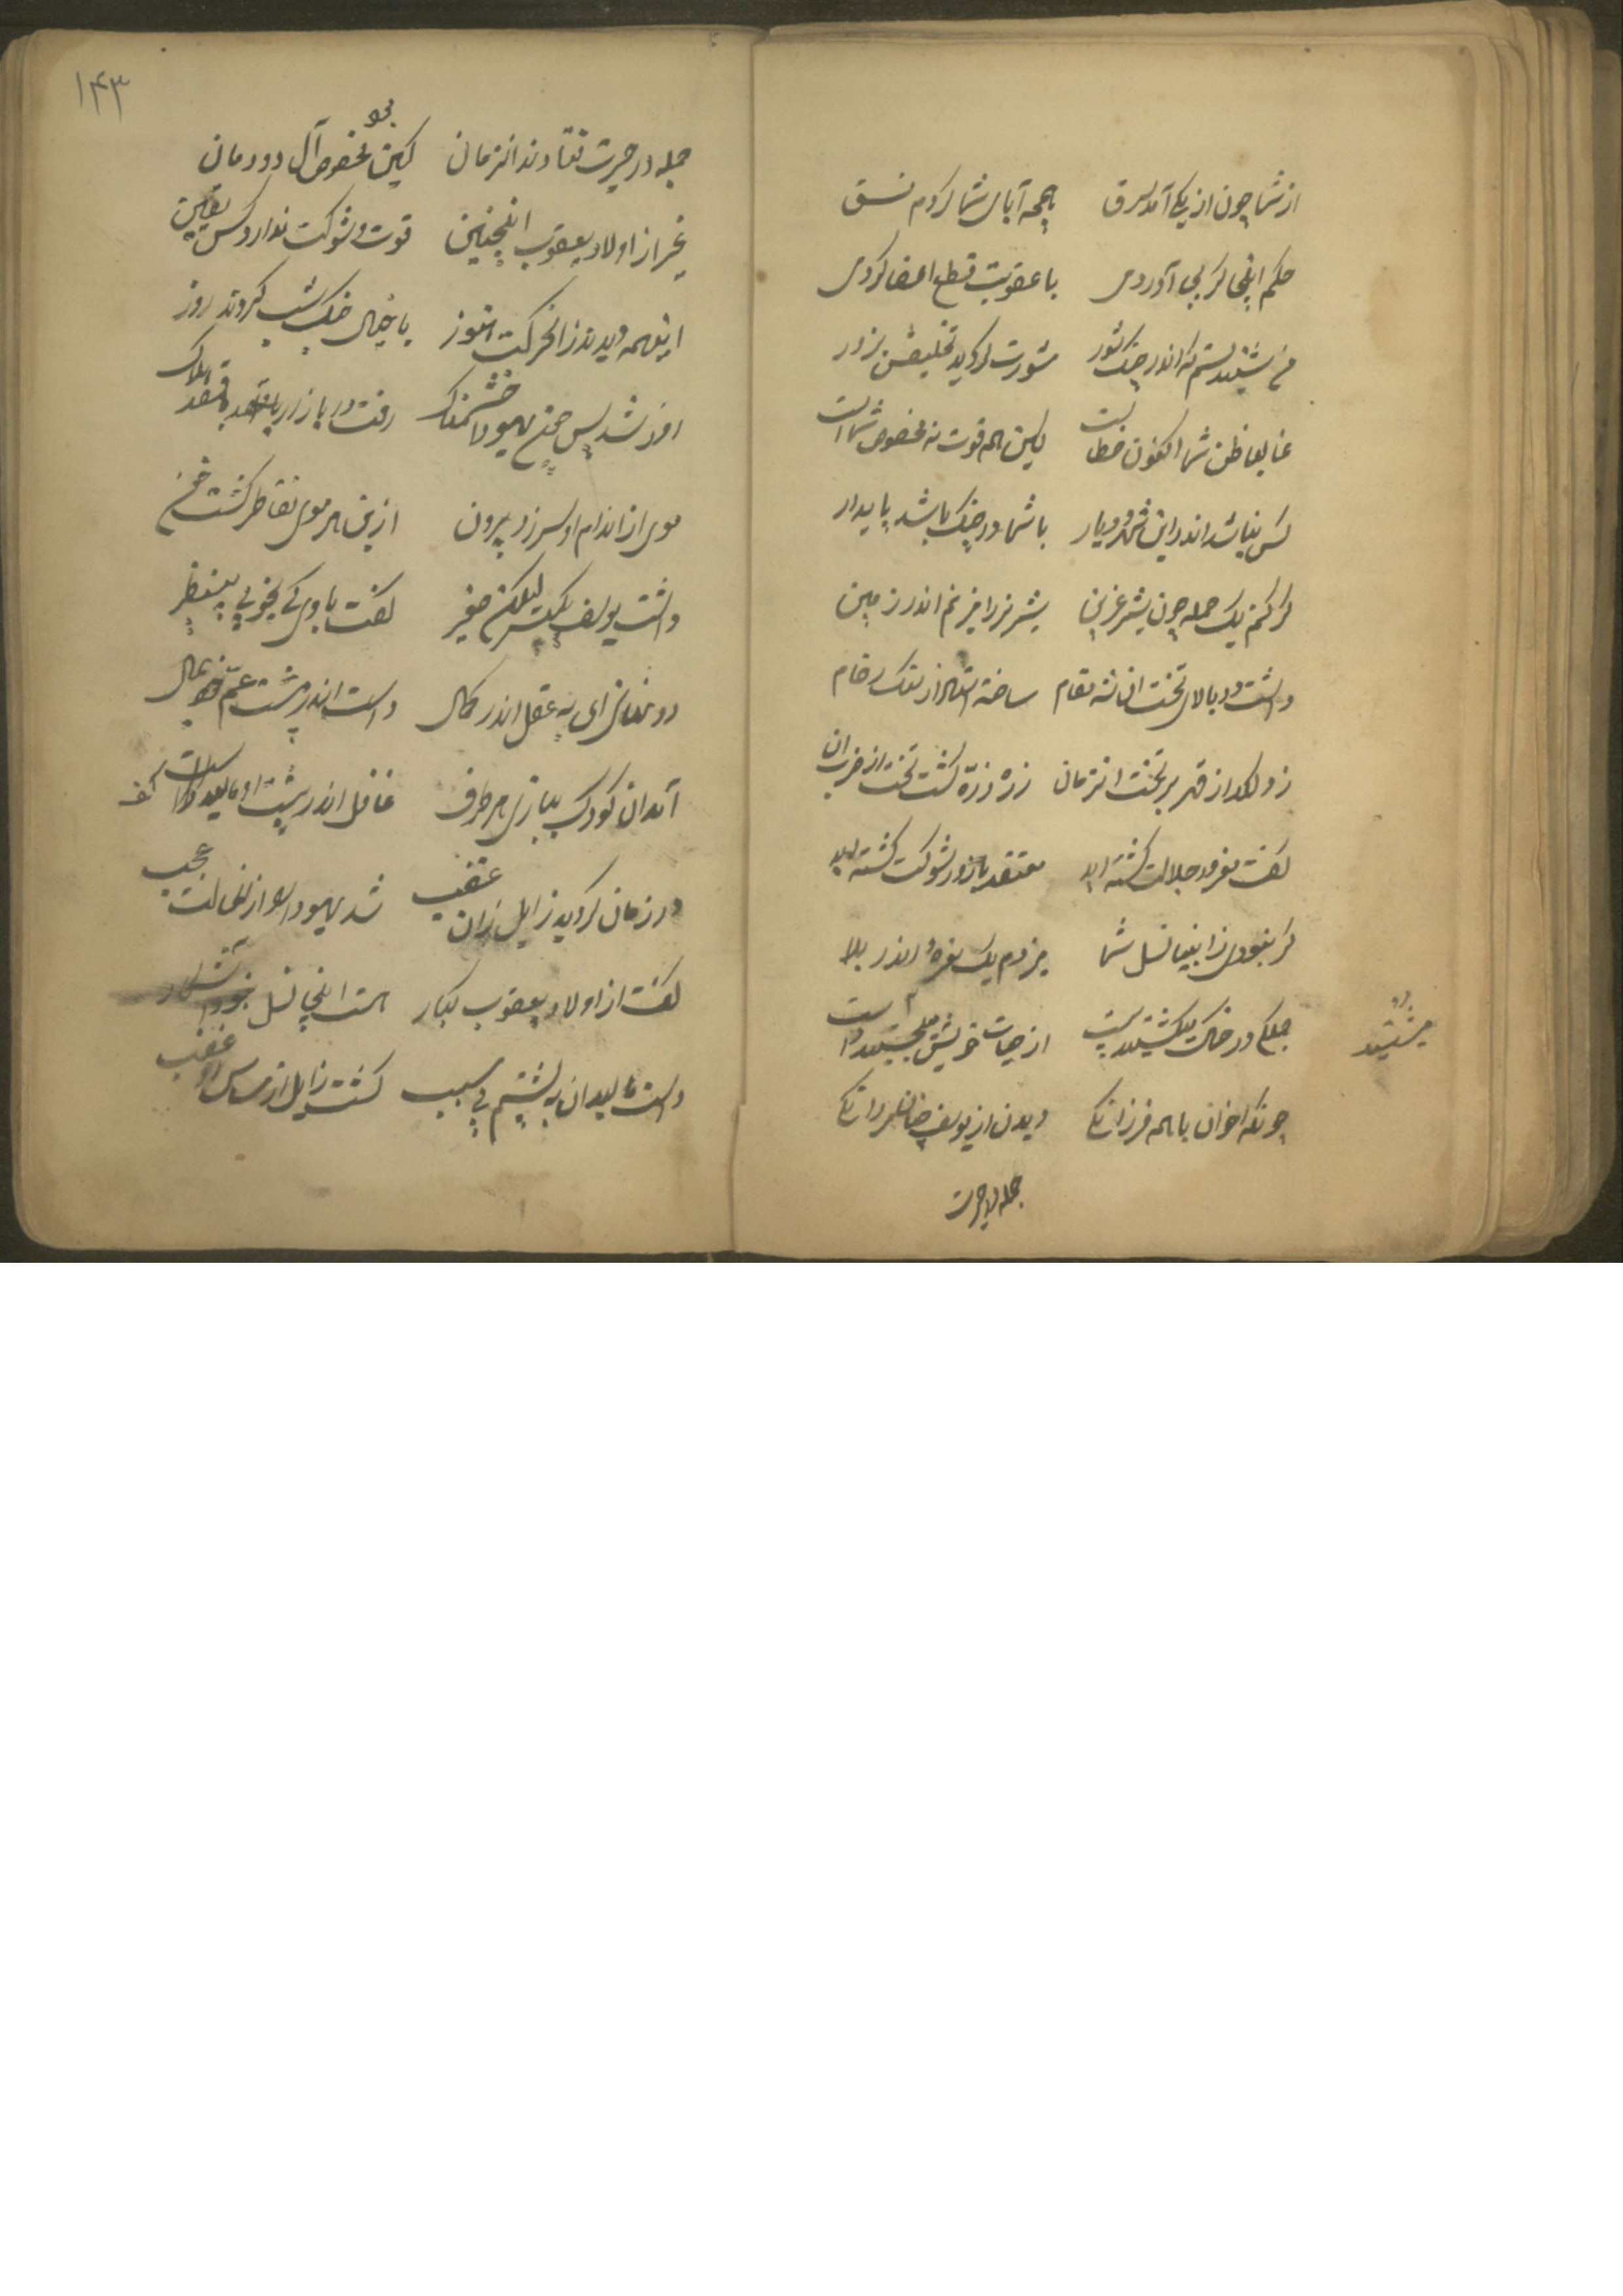 از شما چون از یکی آمد سرق بچه آبای شما کردم نسق
حکم اینجا گر بجا آوردمی با عقوبت قطع اعضا کردمی
من شنیدستم که اندر جنگ شور مشورت کردید تخلیصش بزور
غالبا ظن شما اکنون خطاست لیکن همه قوت نه مخصوص شماست
کس نباشد اندر این شهر و دیار با شما در جنگ باشد پایدار
گر کنم یک حمله چون شیر عرین شیر نر را افکنم اندر زمین
داشت در بالای تخت آن شه مقام ساخته از سنگ رخام
زد لگد از قهر بر تخت آنزمان ذره ذره گشت تخت از ضرب آن
گفت مغرور جلالت گشته اید معتقد با زور و شوکت گشته اید
گر نبودی ز انبیا نسل شما میزدم یک نعره اندر ملا
جملگی در خاک میگشتید پست از حیات خویش میشستید دست
میشستید
چونکه اخوان با همه فرزانگی دیدن از یوسف چنان مردانگی
جمله در حیرت
۱۴۳
جمله در حیرت فتادند آنزمان کین بود مخصوص آل دودمان
غیر از اولاد یعقوب اینچنین قوت و شوکت ندارد کس یقین
اینهمه دیدند زان حرکت هنوز با خیال جنگ شب کردند روز
شد پس خشمناک رفت در بازار با قصد هلاک
موی از اندام او سر زد برون از بن هر موی تقاطر گشت خون
داشت یوسف یک پسر لیکن صغیر گفت با وی کی بخوبی بی نظیر
رو نهانی ای به عقل اندر کمال دست اندر پشت عم خود بمال
آمد آن کودک ببازی هر طرف غافل اندر پشت او مالید کف
در زمان گردید زایل زان غضب شد یهودا زان حالت عجب
گفت از اولاد یعقوب کبار هست اینجا نسل خود آشکار
دست مالید آن به پشتم بی سبب گشت زایل از مساس او غضب